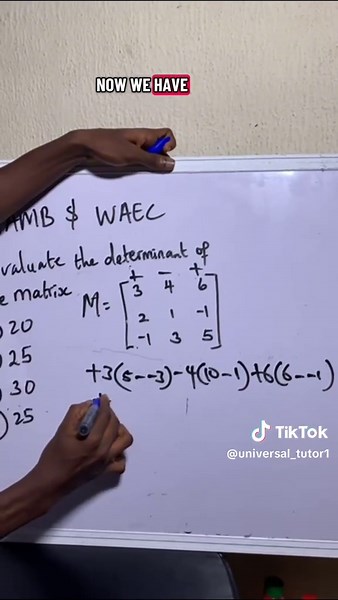 NOW WE HAVE
AMB $ WAEC
valuate the determinant of
e matrix
+ - +
M = [3 4 6
2 1 -1
-1 3 5]
20
25
30
25
+3(5--3)-4(10-1)+6(6--1)
TikTok
@universal_tutor1